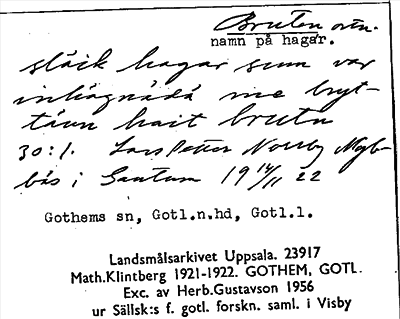 Bruten ortn.
namn på hagar.
släik hagar sum var
inhägnädä me bryt-
täun hait brutn
30:1. Lars Petter Norrby Myh-
bäs i Gautum 19 14/11 22
Gothems sn, Gotl.n.hd, Gotl.l.
Landsmålsarkivet Uppsala. 23917
Math.Klintberg 1921-1922. GOTHEM, GOTL.
Exc. av Herb.Gustavson 1956
ur Sällsk:s f. gotl. forskn. saml. i Visby